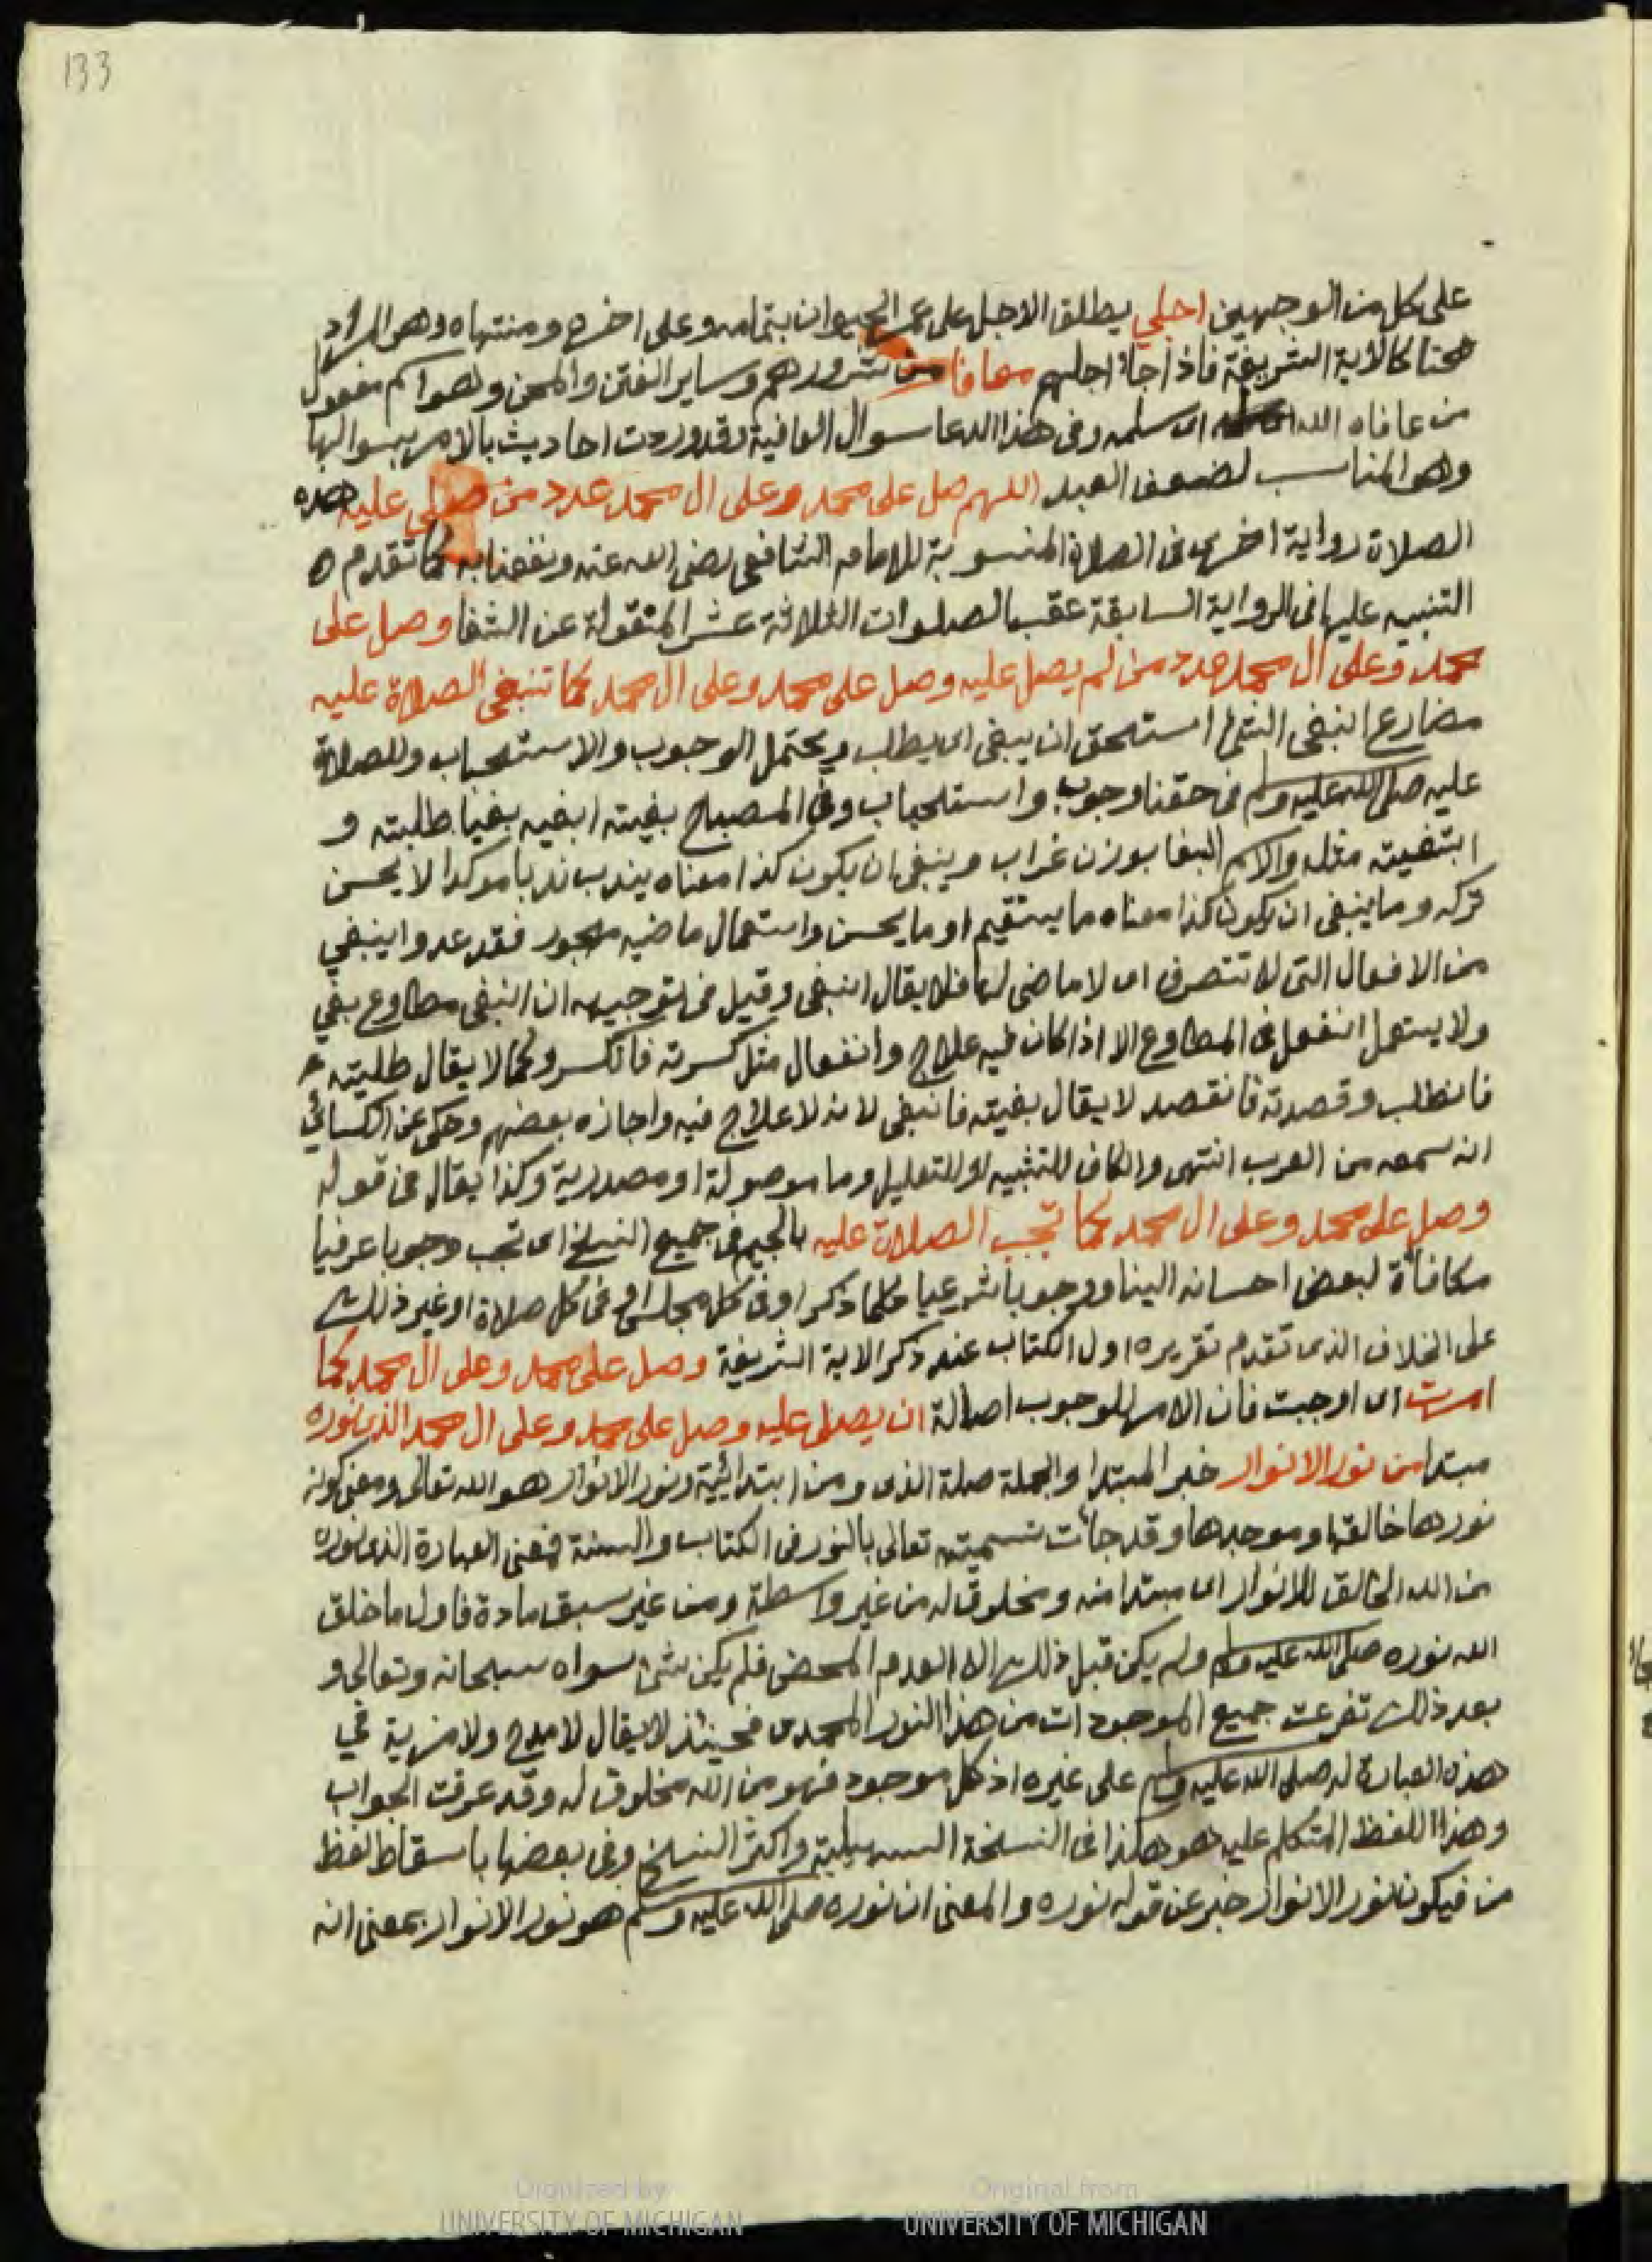 133
على كل من الوجهين اجلي يطلق الاجل على عمر الحيوان بتمامه وعلى اخره ومنتهاه وهو المراد
هنا كالاية الشريفة فاذا جاء اجلهم معافا من شرورهم وساير الفتن والمحن وهو اسم مفعول
من عافاه الله اى سلمه وفى هذا الدعا سوال العافية وقد وردت احاديث بالامر بسوالها
وهو المناسب لضعف العبد اللهم صل على محمد وعلى ال محمد عدد من صلي عليه هذه
الصلاة رواية اخرى فى الصلاة المنسوبة للامام الشافعى رضى الله عنه ونفعنا به كما تقدم ه
التنبيه عليها فى الرواية السابقة عقب الصلوات الثلاثة عشر المنقولة عن الشفا وصل على
محمد وعلى ال محمد عدد من لم يصل عليه وصل على محمد وعلى ال محمد كما تنبغى الصلاة عليه
مضارع انبغى الشئ استحق ان يبغى اى يطلب ويحتمل الوجوب والاستحباب وللصلاة
عليه صلى الله عليه وسلم فى حقنا وجوب واستحباب وفى المصباح بغيته ابغيه بغيا طلبته و
ابتغيته مثله والاسم البغا بوزن غراب وينبغى ان يكون كذا معناه يندب ندبا موكدا لا يحسن
تركه وما ينبغى ان يكون كذا معناه ما يستقيم او ما يحسن واستعمال ماضيه مهجور فقد عدوا ينبغي
من الافعال التى لا تتصرف اى لا ماضى لها فلا يقال انبغى وقيل فى توجيهه ان انبغى مطاوع بغي
ولا يستعمل انفعل فى المطاوع الا اذا كان فيه علاج وانفعال مثل كسرته فانكسر وكما لا يقال طلبته
فانطلب وقصدته فانقصد لا يقال بغيته فانبغى لانه لا علاج فيه واجازه بعضهم وحكى عن الكسائي
انه سمعه من العرب انتهى والكاف للتشبيه او للتعليل وما موصولة او مصدرية وكذا يقال فى قوله
وصل على محمد وعلى ال محمد كما تجب الصلاة عليه بالجيم فى جميع النسخ اى تجب وجوبا عرفيا
مكافأة لبعض احسانه الينا ووجوبا شرعيا كلما ذكر او فى كل مجلس او فى كل صلاة او غير ذلك
على الخلاف الذى تقدم تقريره اول الكتاب عند ذكر الاية الشريفة وصل على محمد وعلى ال محمد كما
امرت اى اوجبت فان الامر للوجوب اصالة ان يصلى عليه وصل على محمد وعلى ال محمد الذى نوره
مبتدا من نور الانوار خبر المبتدا والجملة صلة الذى ومن ابتدائية ونور الانوار هو الله تعالى ومعنى كونه
نورها خالقها وموجدها وقد جاءت تسميته تعالى بالنور فى الكتاب والسنة فمعنى العبارة الذى نوره
من الله الخالق للانوار اى مبتدا منه ومخلوق له من غير واسطة ومن غير سبق مادة فاول ما خلق
الله نوره صلى الله عليه وسلم ولم يكن قبل ذلك الا العدم المحض فلم يكن شئ سواه سبحانه وتعالى و
بعد ذلك تفرعت جميع الموجودات من هذا النور المحمدى فحينئذ لا يقال لا مدح ولا مزية في
هذه العبارة له صلى الله عليه وسلم على غيره اذ كل موجود فهو من الله مخلوق له وقد عرفت الجواب
وهذا اللفظ المتكلم عليه هو هكذا فى النسخة السهيلية واكثر النسخ وفى بعضها باسقاط لفظ
من فيكون نور الانوار خبر عن قوله نوره والمعنى ان نوره صلى الله عليه وسلم هو نور الانوار بمعنى انه
Digitized by
UNIVERSITY OF MICHIGAN
Original from
UNIVERSITY OF MICHIGAN